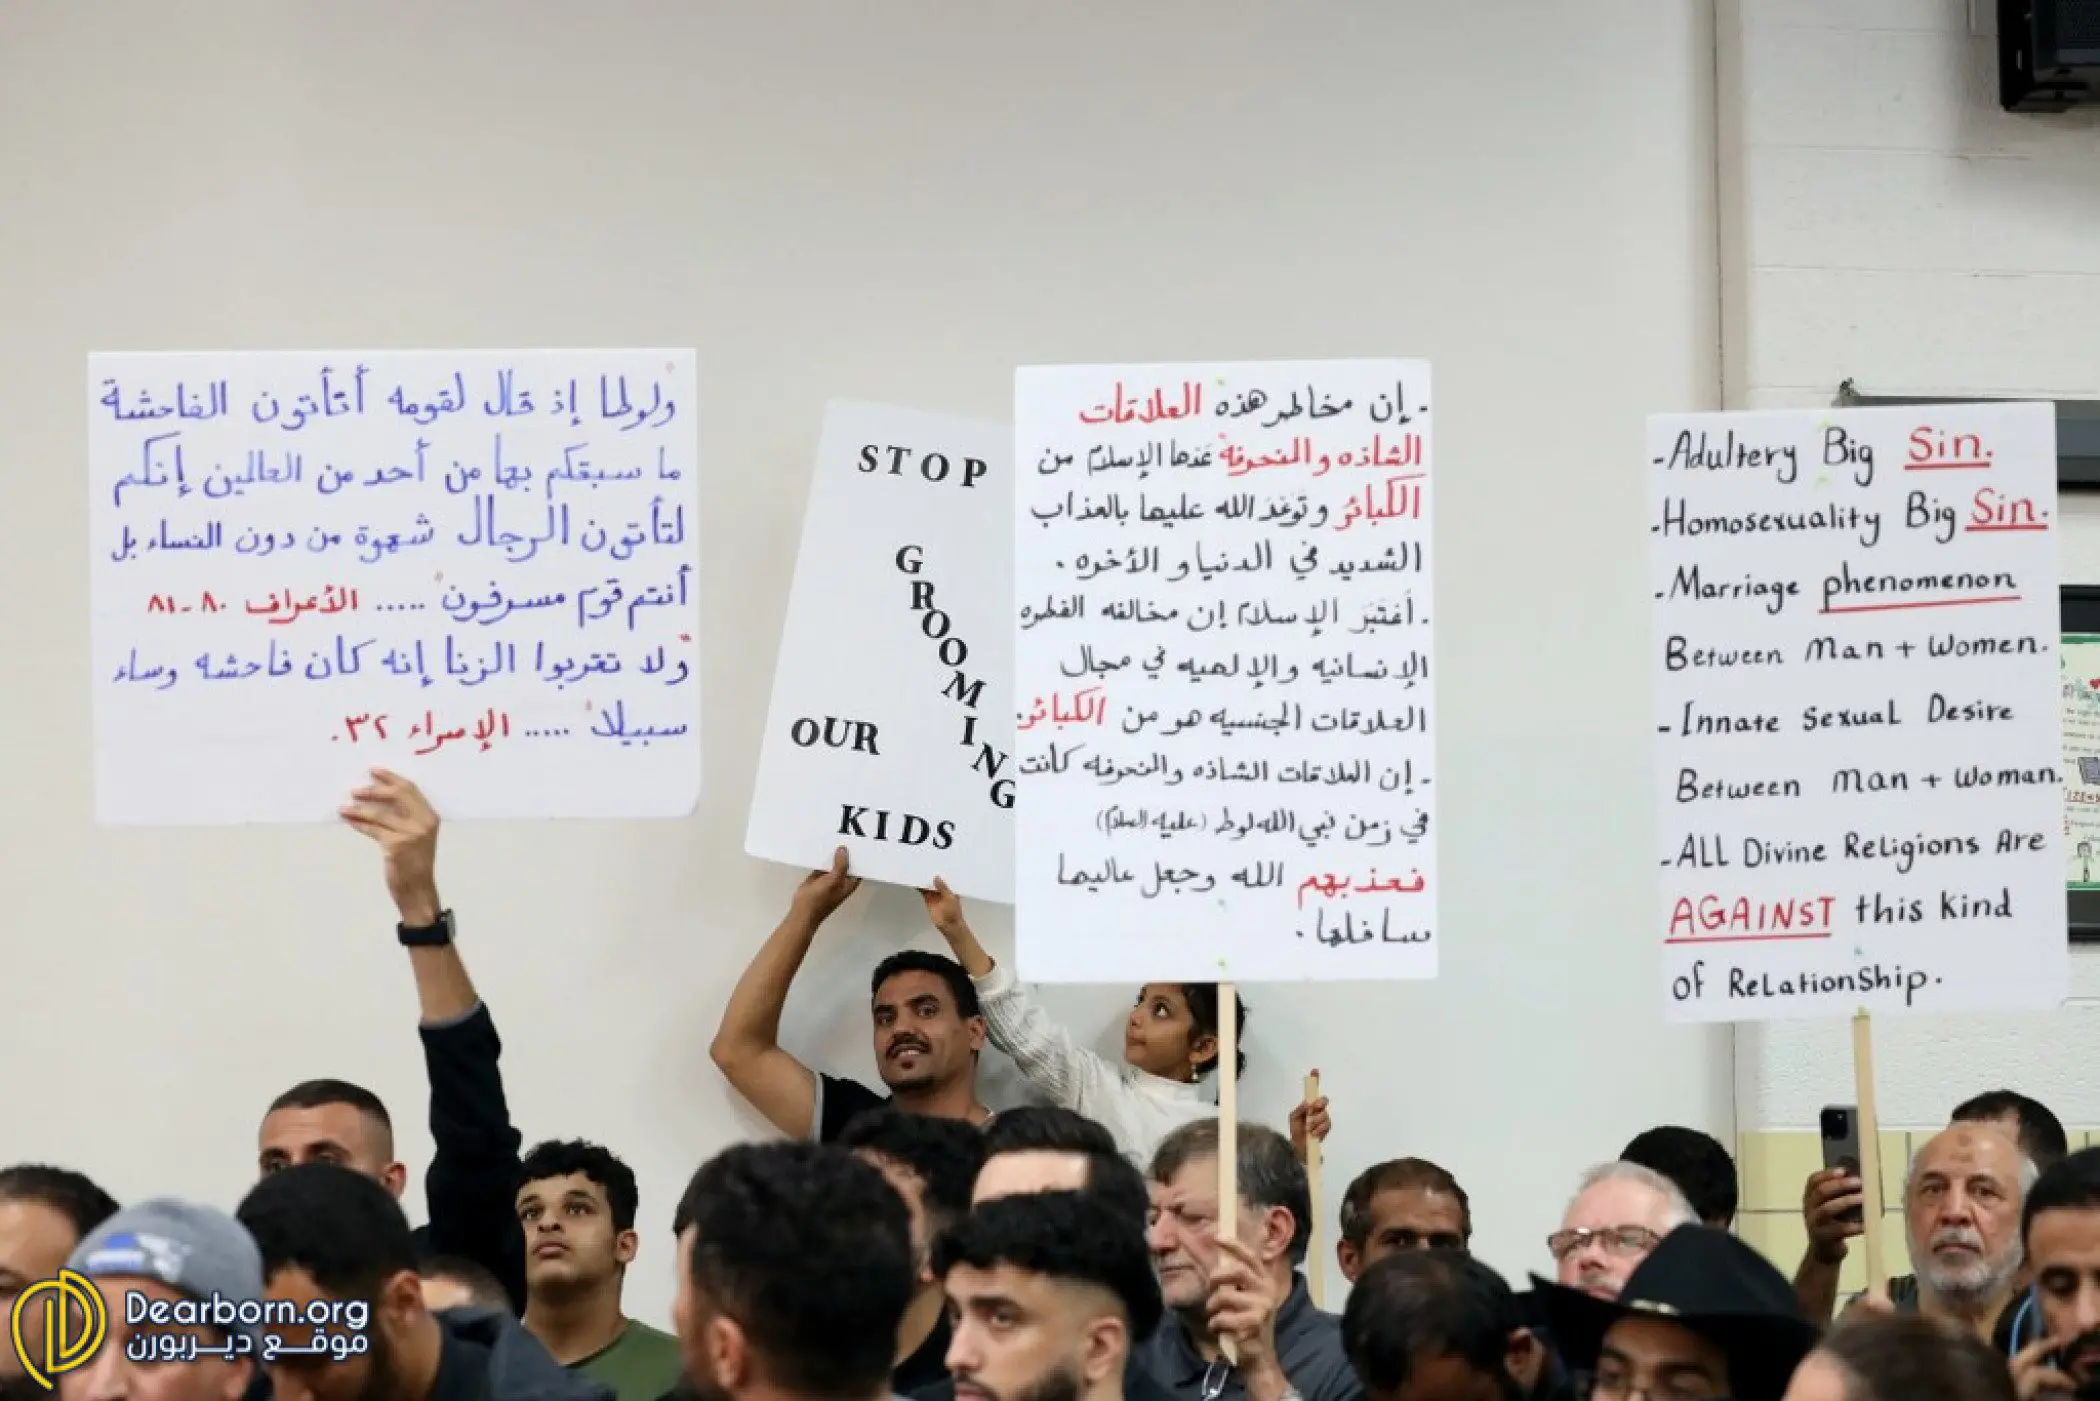 "ولوطا إذ قال لقومه أتأتون الفاحشة
ما سبقكم بها من أحد من العالمين إنكم
لتأتون الرجال شهوة من دون النساء بل
أنتم قوم مسرفون" ..... الأعراف ٨٠-٨١
"ولا تقربوا الزنا إنه كان فاحشه وساء
سبيلا" ..... الإسراء ٣٢.
STOP
GROOMING
OUR
KIDS
- إن مخاطر هذه العلاقات
الشاذه والمنحرفة عَدها الإسلام من
الكبائر وتَوعَد الله عليها بالعذاب
الشديد في الدنيا و الأخره .
- أعَتبَر الإسلام إن مخالفه الفطره
الإنسانيه والإلهيه في مجال
العلاقات الجنسيه هو من الكبائر.
- إن العلاقات الشاذه والمنحرفه كانت
في زمن نبي الله لوط (عليه السلام)
فعذبهم الله وجعل عاليها
سافلها .
- Adultery Big Sin.
- Homosexuality Big Sin.
- Marriage phenomenon
Between Man + Women.
- Innate Sexual Desire
Between Man + Woman.
- ALL Divine Religions Are
AGAINST this Kind
of Relationship.
Dearborn.org
موقع ديربورن